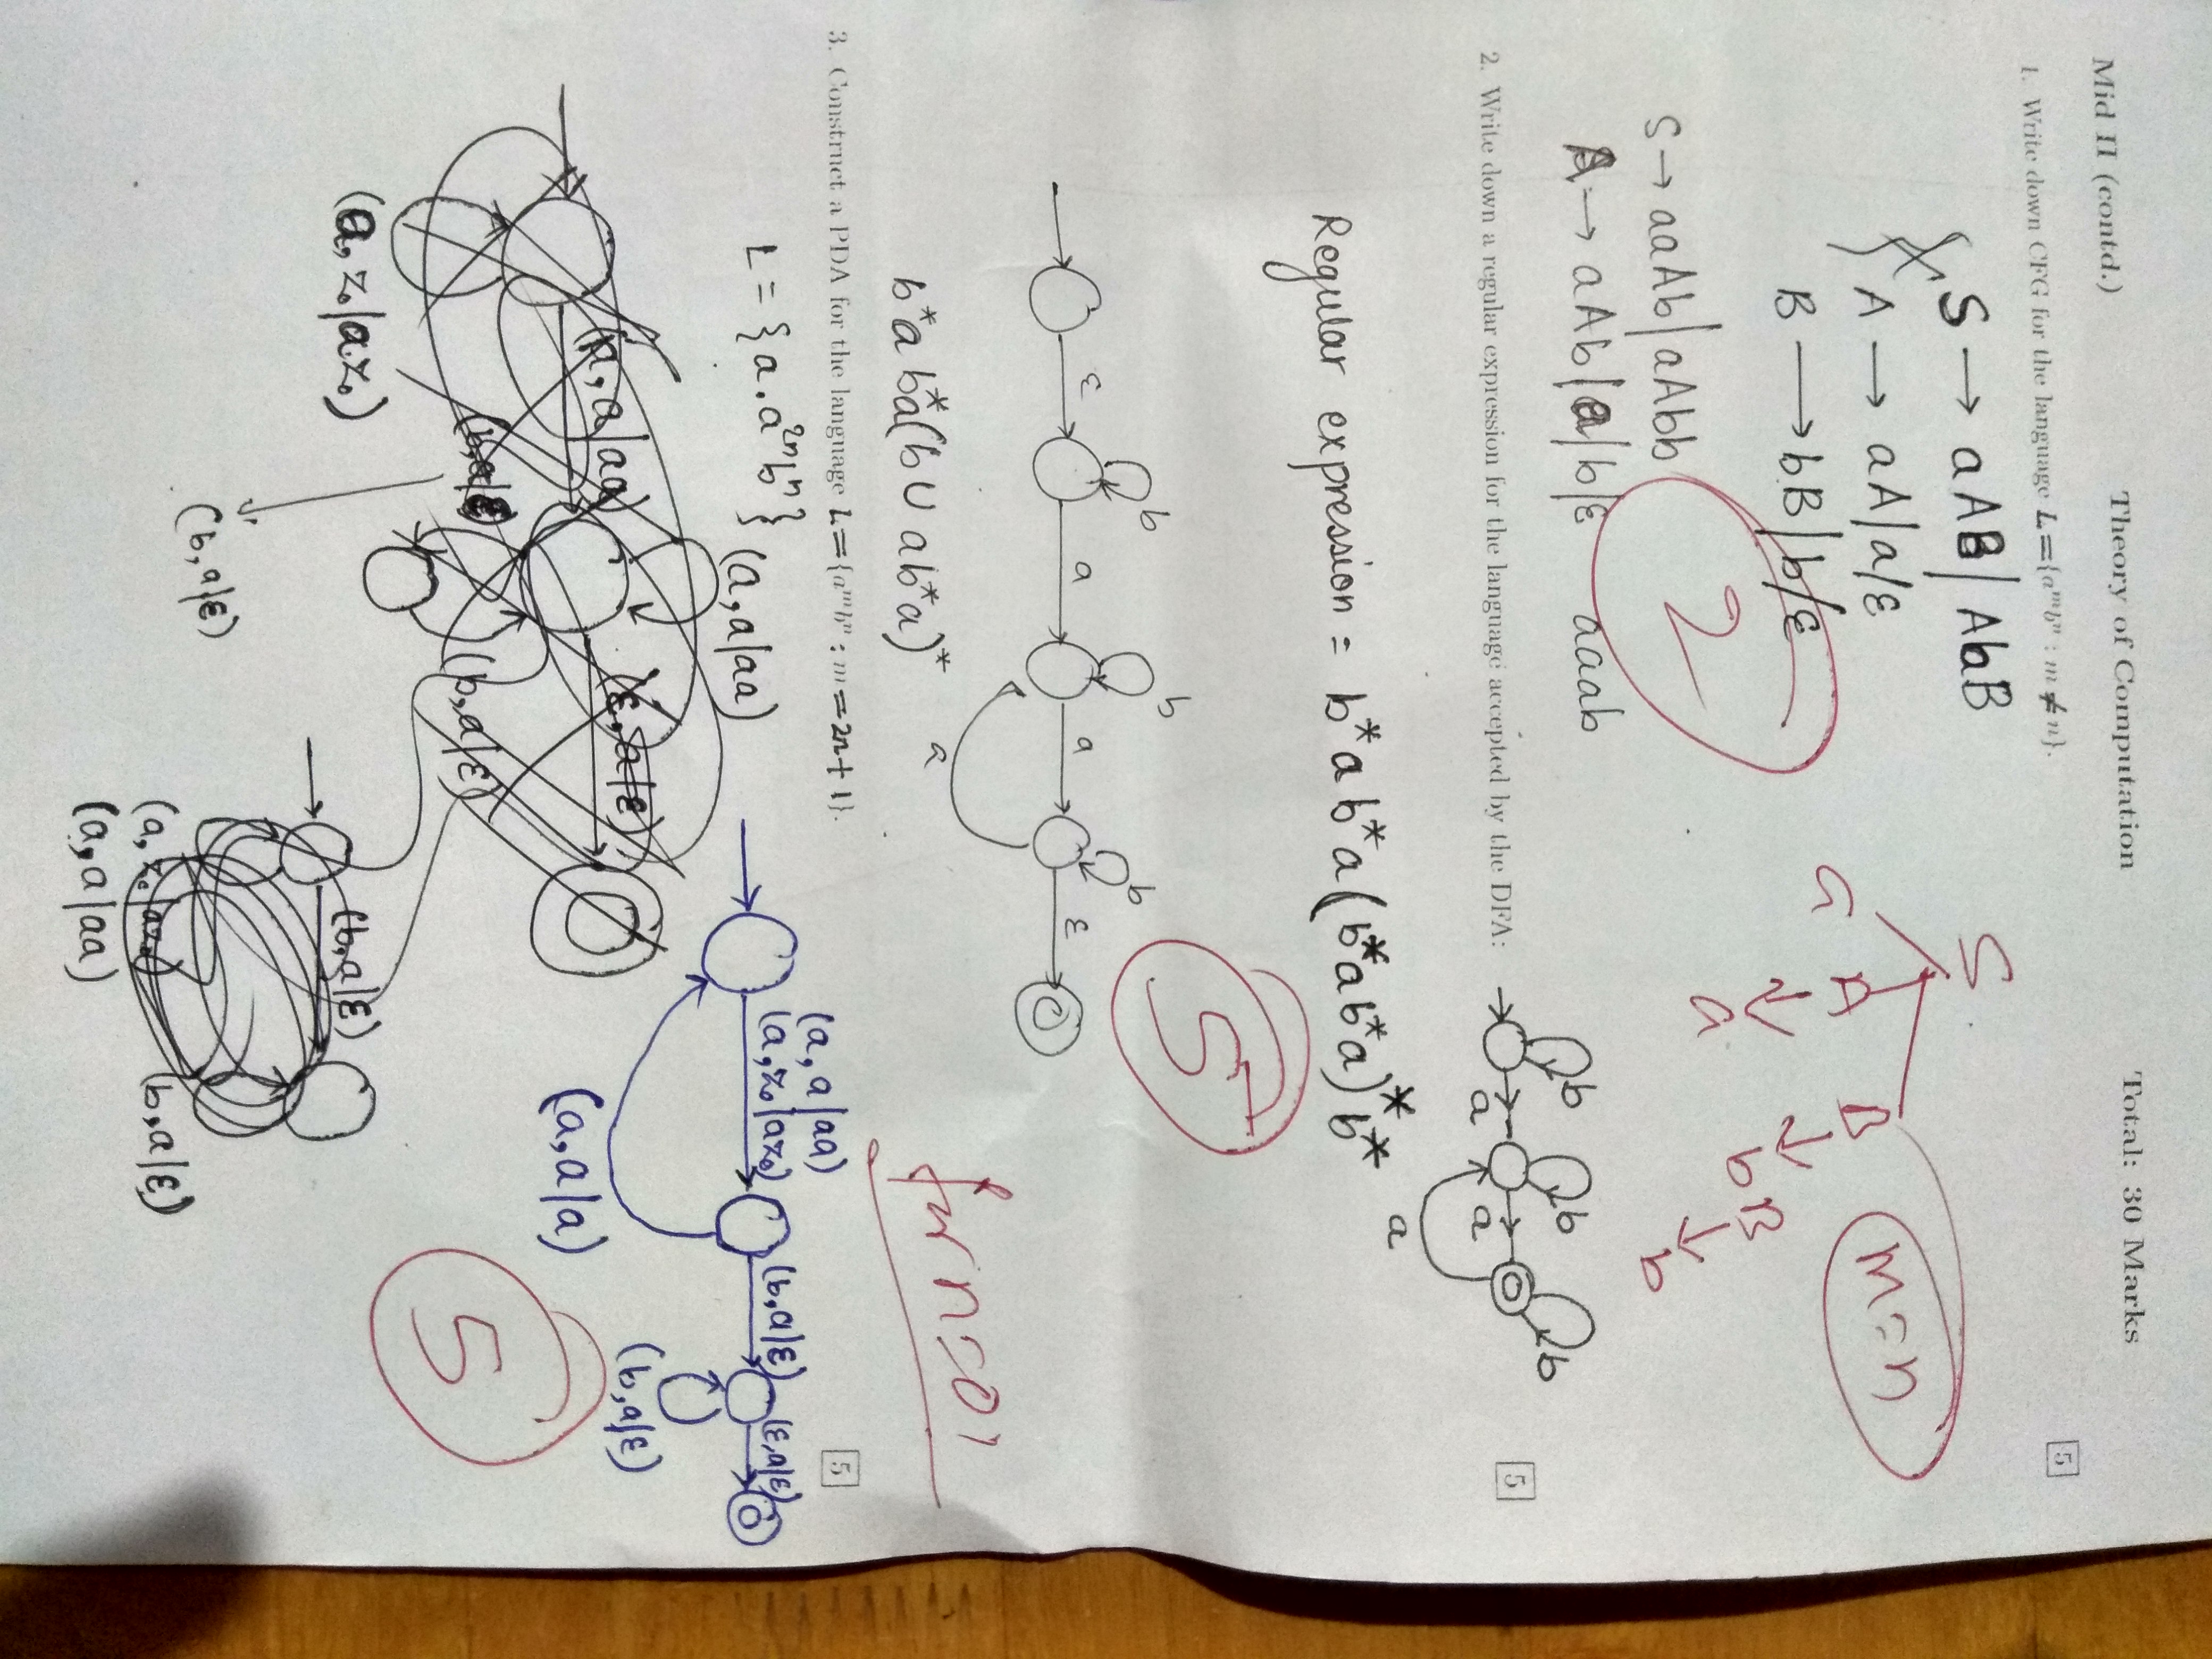 Mid II (contd.) Theory of Computation Total: 30 Marks
1. Write down CFG for the language L={aᵐbⁿ : m ≠ n}. 5
S → aAB | AbB
A → aA/a/ε
B → bB/b/ε
S → aaAb | aAbb
A → aAb/a/b/ε aaab
2
S
a A B
a bB
b
m=n
2. Write down a regular expression for the language accepted by the DFA: 5
b b b
a a
a
Regular expression = b*ab*a(b*ab*a)*b*
5
b b b
ε a a ε
a
b*ab*a(b∪ab*a)*
3. Construct a PDA for the language L={aᵐbⁿ : m=2n+1}. 5
for n=0,
L = {a.a²ⁿbⁿ}
(a, a/aa)
(a, a/aa)
(a, z₀/az₀)
(b, a/ε)
(ε, a/ε)
(a, a/a)
(b, a/ε)
(a, a/aa)
(ε, a/ε)
(b, a/ε)
(b, a/ε)
(a, z₀/az₀)
(b, a/ε)
(b, a/ε)
(a, z₀/az₀)
(a, a/aa)
(b, a/ε)
5